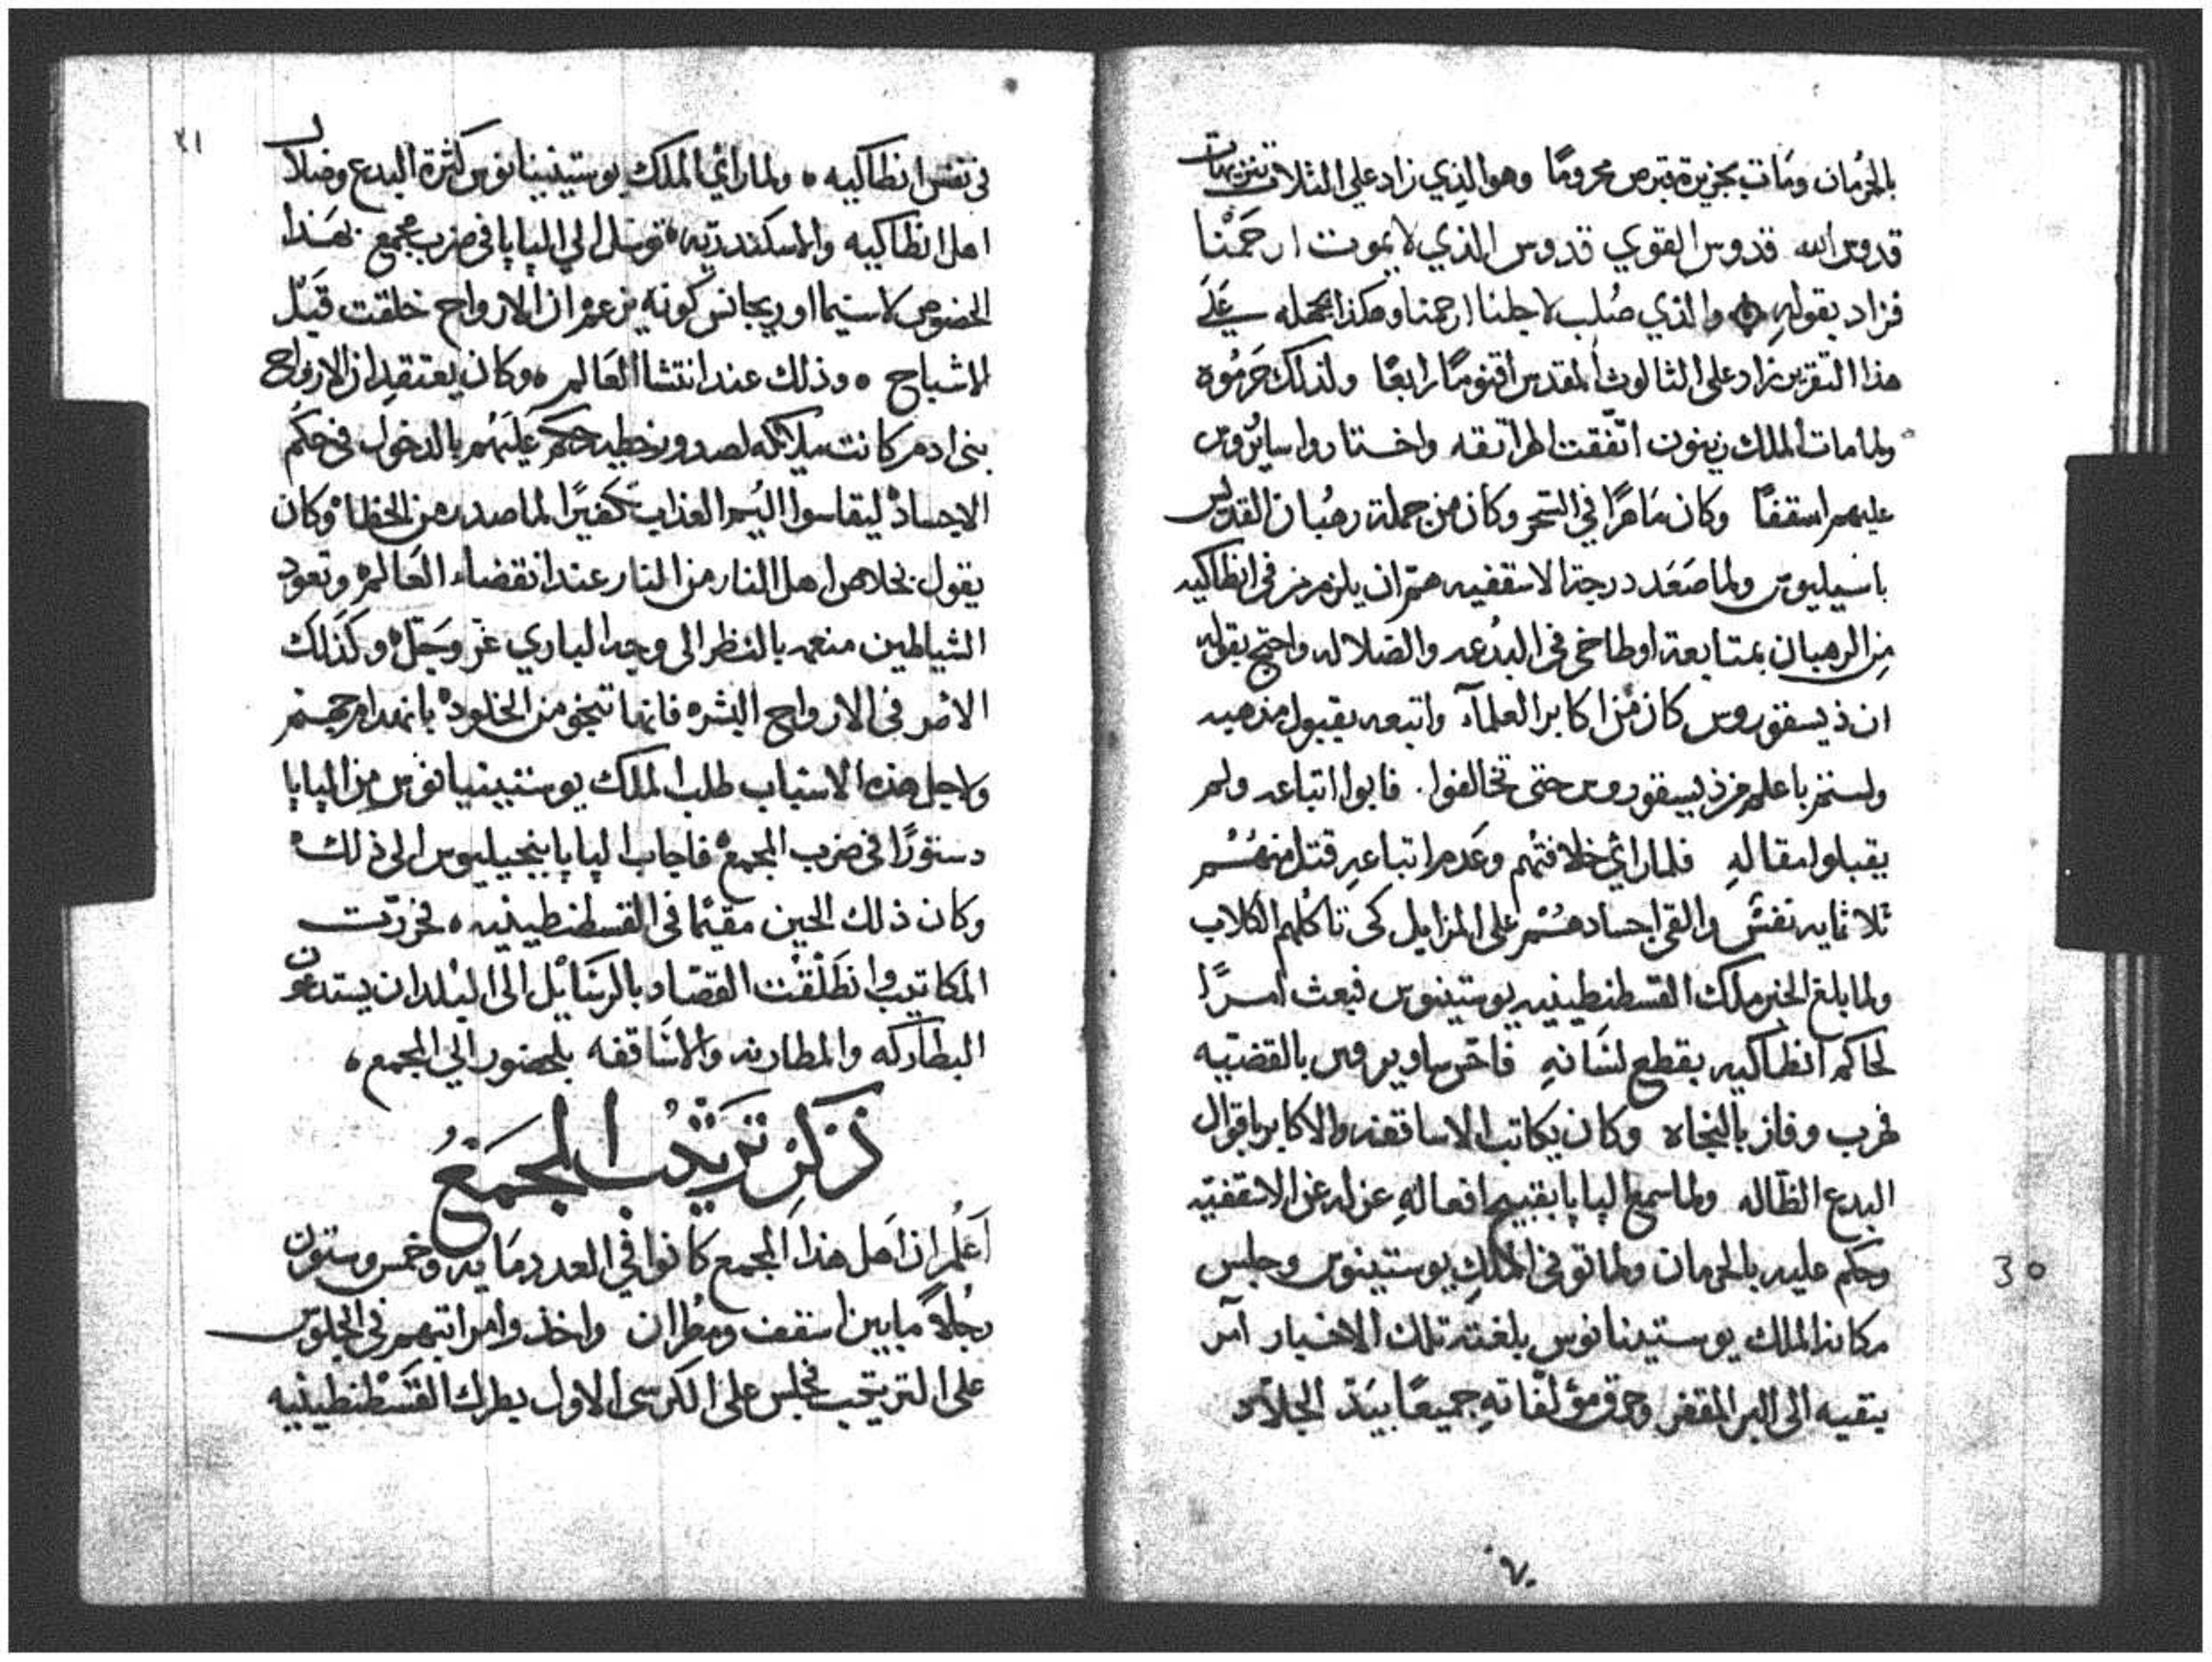 بالحرمان ومات بجزيرة قبرص محرومًا وهو الذي زاد علي الثلات تنزيهات
قدوس الله قدوس القوي قدوس الذي لا يموت ارحمنا
فزاد بقوله والذي صُلب لاجلنا ارحمنا وهكذا بجهله علي
هذا التقرير زاد علي الثالوث المقدس اقنومًا رابعًا ولذلك حرموه
ولما مات الملك زينون اتّفقت الهراتقه واختاروا سايروس
عليهم اسقفًا وكان ماهرًا في السحر وكان من جملة رهبان القديس
باسيليوس ولما صَعَد درجة الاسقفيه همّ ان يلزم من في انطاكيه
من الرهبان بمتابعة اوطاخي في البدعه والضلاله واحتج بقوله
ان ذيسقوروس كان من اكابر العلمآء واتبعه بقبول مذهبه
ولستم باعلم من ذيسقوروس حتى تخالفوا. فابوا اتباعه ولم
يقبلوا مقاله فلما رائ خلافتهم وعدم اتباعهِ قتل منهُم
ثلاثمايه نفس والقى اجسادهُم على المزابل كى تاكلهم الكلاب
ولما بلغ الخبر ملك القسطنطينيه يوستينوس فبعث امرًا
لحاكم انطاكيه بقطع لسَانهِ فاحس ساويروس بالقضيه
فهرب وفاز بالنجاه وكان يكاتب الاساقفه والاكابر باقوال
البدع الظاله ولما سمع البابا بقبيح افعالهِ عزله عن الاسقفيّه
وحكم عليه بالحرمان ولما توفى الملك يوستينوس وجلس
مكانه الملك يوستينانوس بلغته تلك الاخبار آمر
بنفيه الى البر المقفر وحرق مؤلفاتهِ جميعًا بيَدّ الجلاّد
30
٢١
فى نفس انطاكيه ولما رائ الملك يوستينيانوس كثرة البدع وضلال
اهل انطاكيه والاسكندريه توسل الي البابا فى ضرب مجمع بهذا
الخصوص لاسيما اوريجانس كونه يزعم ان الارواح خلقت قبل
الاشباح وذلك عند انتشا العَالم وكان يعتقد ان الارواح
بنى ادم كانت ملائكه لصدور خطيه حكم عليهم بالدخول فى حكم
الاجساد ليقاسوا اليم العذاب تكفيرًا لما صدر من الخطا وكان
يقول بخلاص اهل النار من النار عند انقضاء العَالم وتعود
الشياطين منعمه بالنظر الى وجه الباري عز وجلّ وكذلك
الامر فى الارواح البشره فانها تنجو من الخلود بانهدام جهنم
ولاجل هذه الاسباب طلب الملك يوستينيانوس من البابا
دستورًا فى ضرب المجمع فاجاب البابا بيجيليوس الى ذلك
وكان ذلك الحين مقيمًا فى القسطنطينيه فحررت
المكاتيب وانطلقت القصّاد بالرسَائل الى البلدان يستدعون
البطاركه والمطارنه والاساقفه بالحضور الي المجمع
ذكر ترتيب المجمَع
اعلم ان اهل هذا المجمع كانوا في العدد مايه وخمس وستون
رجُلاً مابين اسقف ومطران واخذوا مراتبهم فى الجلوس
على الترتيب فجلس على الكرسى الاول بطرك القسطنطينيه